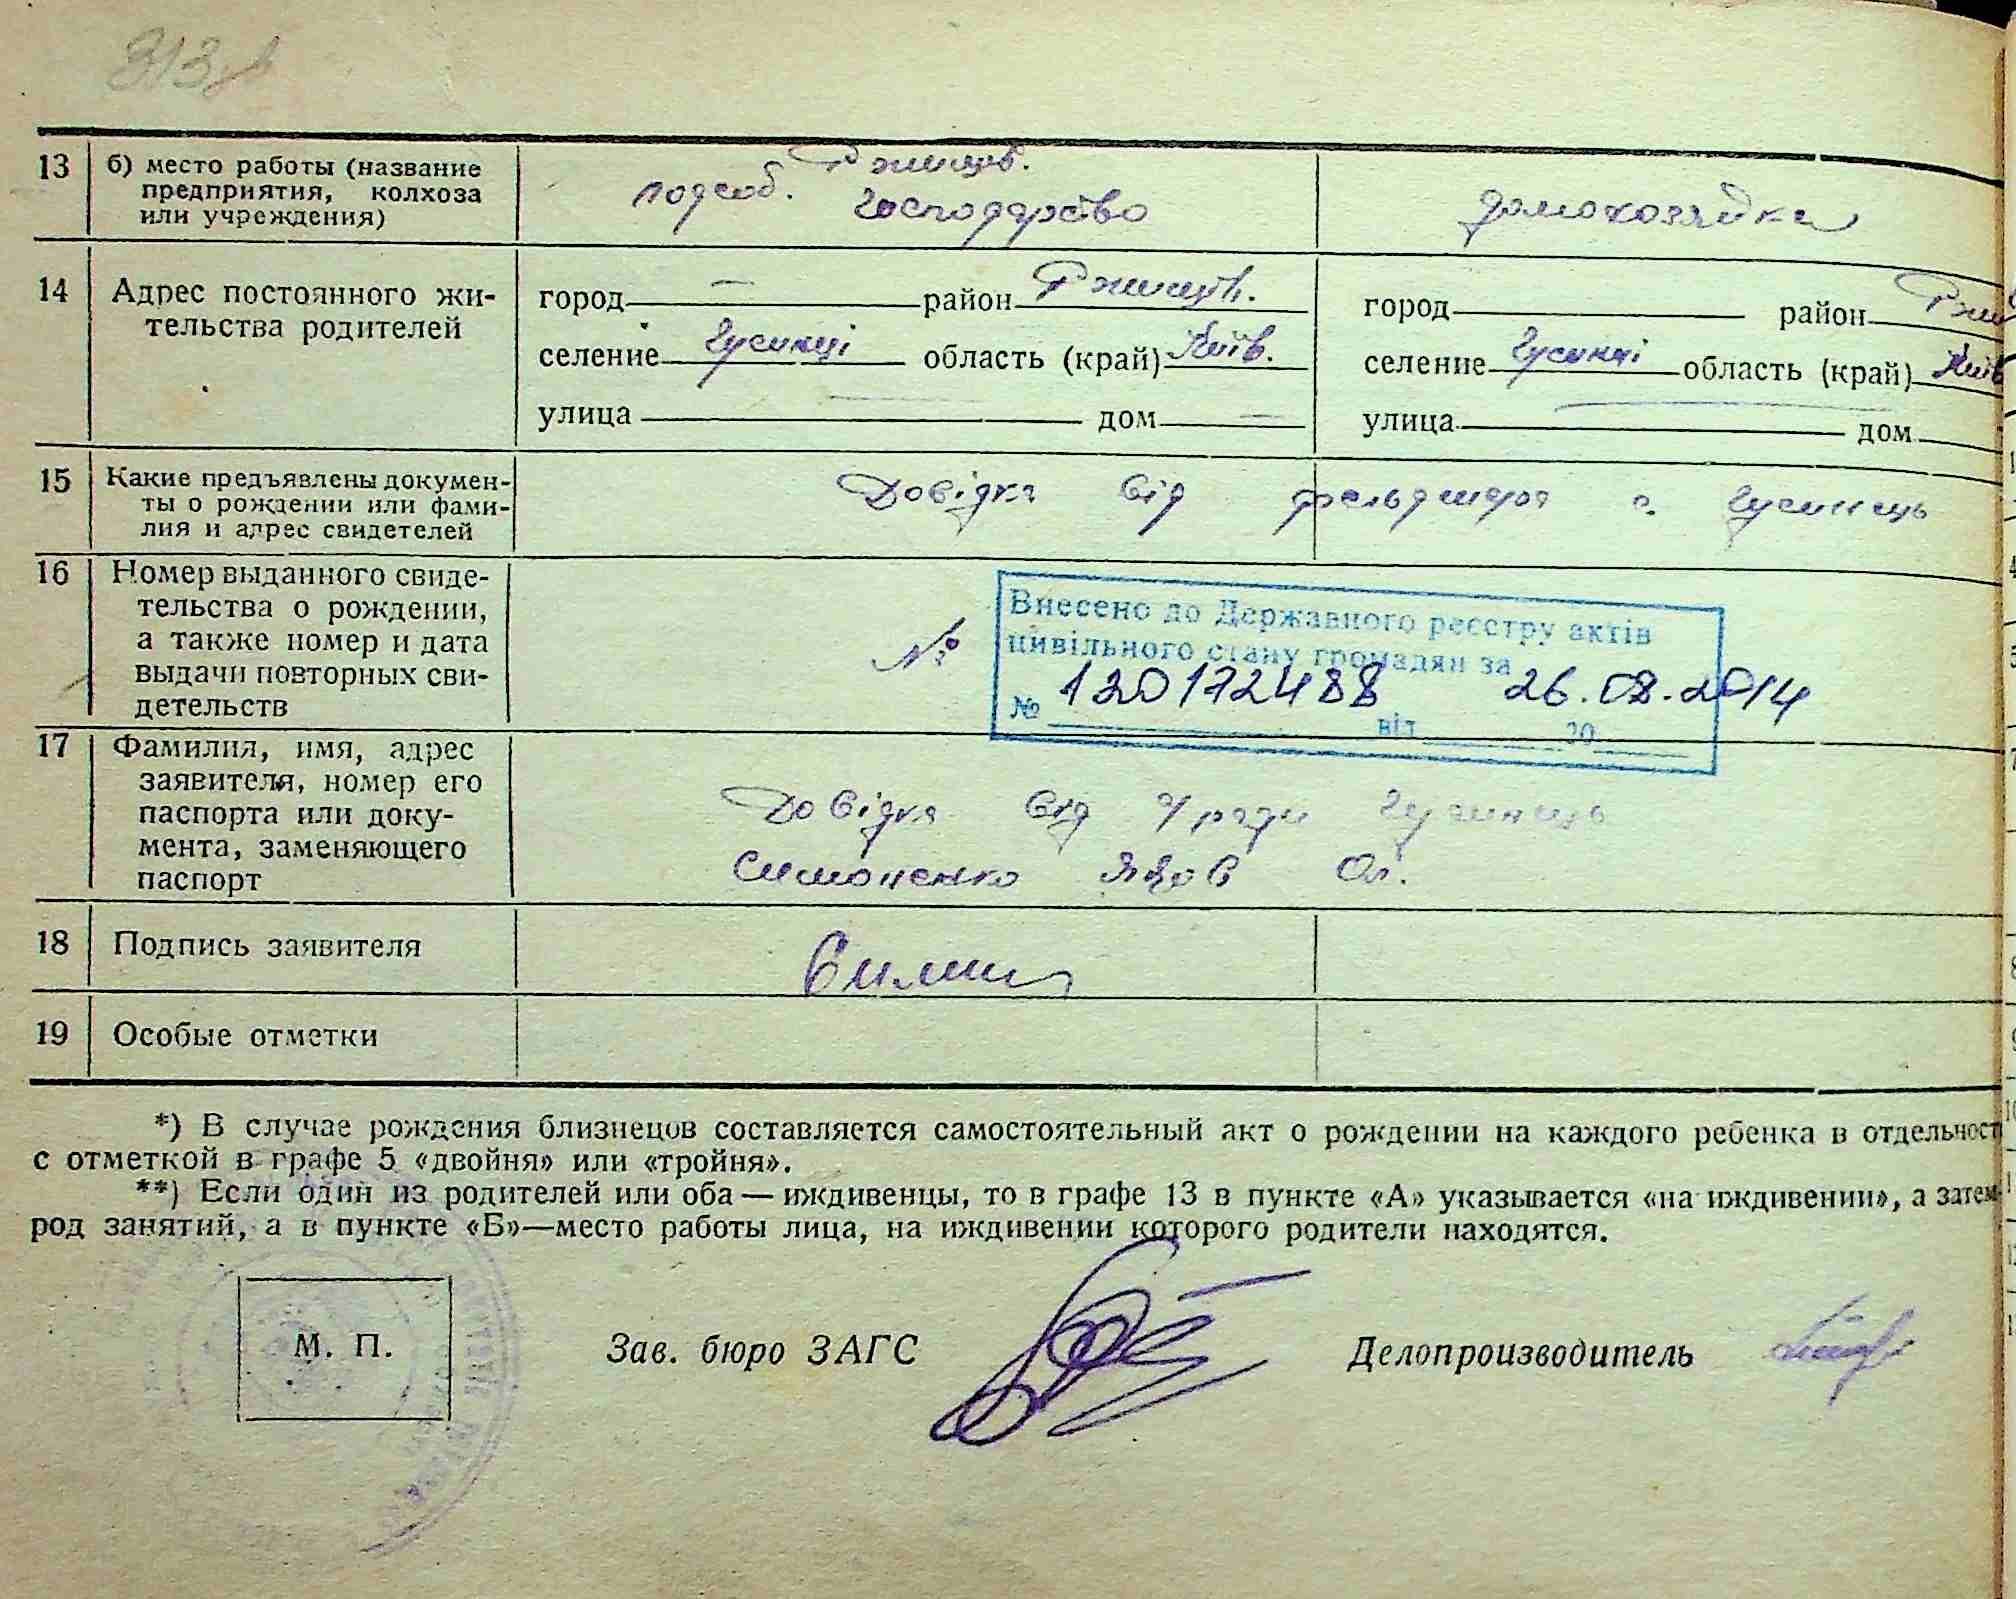 313
13 б) место работы (название предприятия, колхоза или учреждения)
Ржищів.
подсоб. господарство
домохозяйка
14 Адрес постоянного жительства родителей
город — район Ржищів.
селение Гусинці область (край) Київ.
улица — дом —
город район Ржи
селение Гусинці область (край) Київ
улица — дом
15 Какие предъявлены документы о рождении или фамилия и адрес свидетелей
Довідка від фельдшера с. Гусинець
16 Номер выданного свидетельства о рождении, а также номер и дата выдачи повторных свидетельств
№
Внесено до Державного реєстру актів
цивільного стану громадян за
№ 120172488 від 26.08.2014
20
17 Фамилия, имя, адрес заявителя, номер его паспорта или документа, заменяющего паспорт
Довідка від с/ради Гусинець
Симоненко Яков Ол.
18 Подпись заявителя
19 Особые отметки
*) В случае рождения близнецов составляется самостоятельный акт о рождении на каждого ребенка в отдельност
с отметкой в графе 5 «двойня» или «тройня».
**) Если один из родителей или оба — иждивенцы, то в графе 13 в пункте «А» указывается «на иждивении», а затем
род занятий, а в пункте «Б»—место работы лица, на иждивении которого родители находятся.
М. П.
Зав. бюро ЗАГС
Делопроизводитель